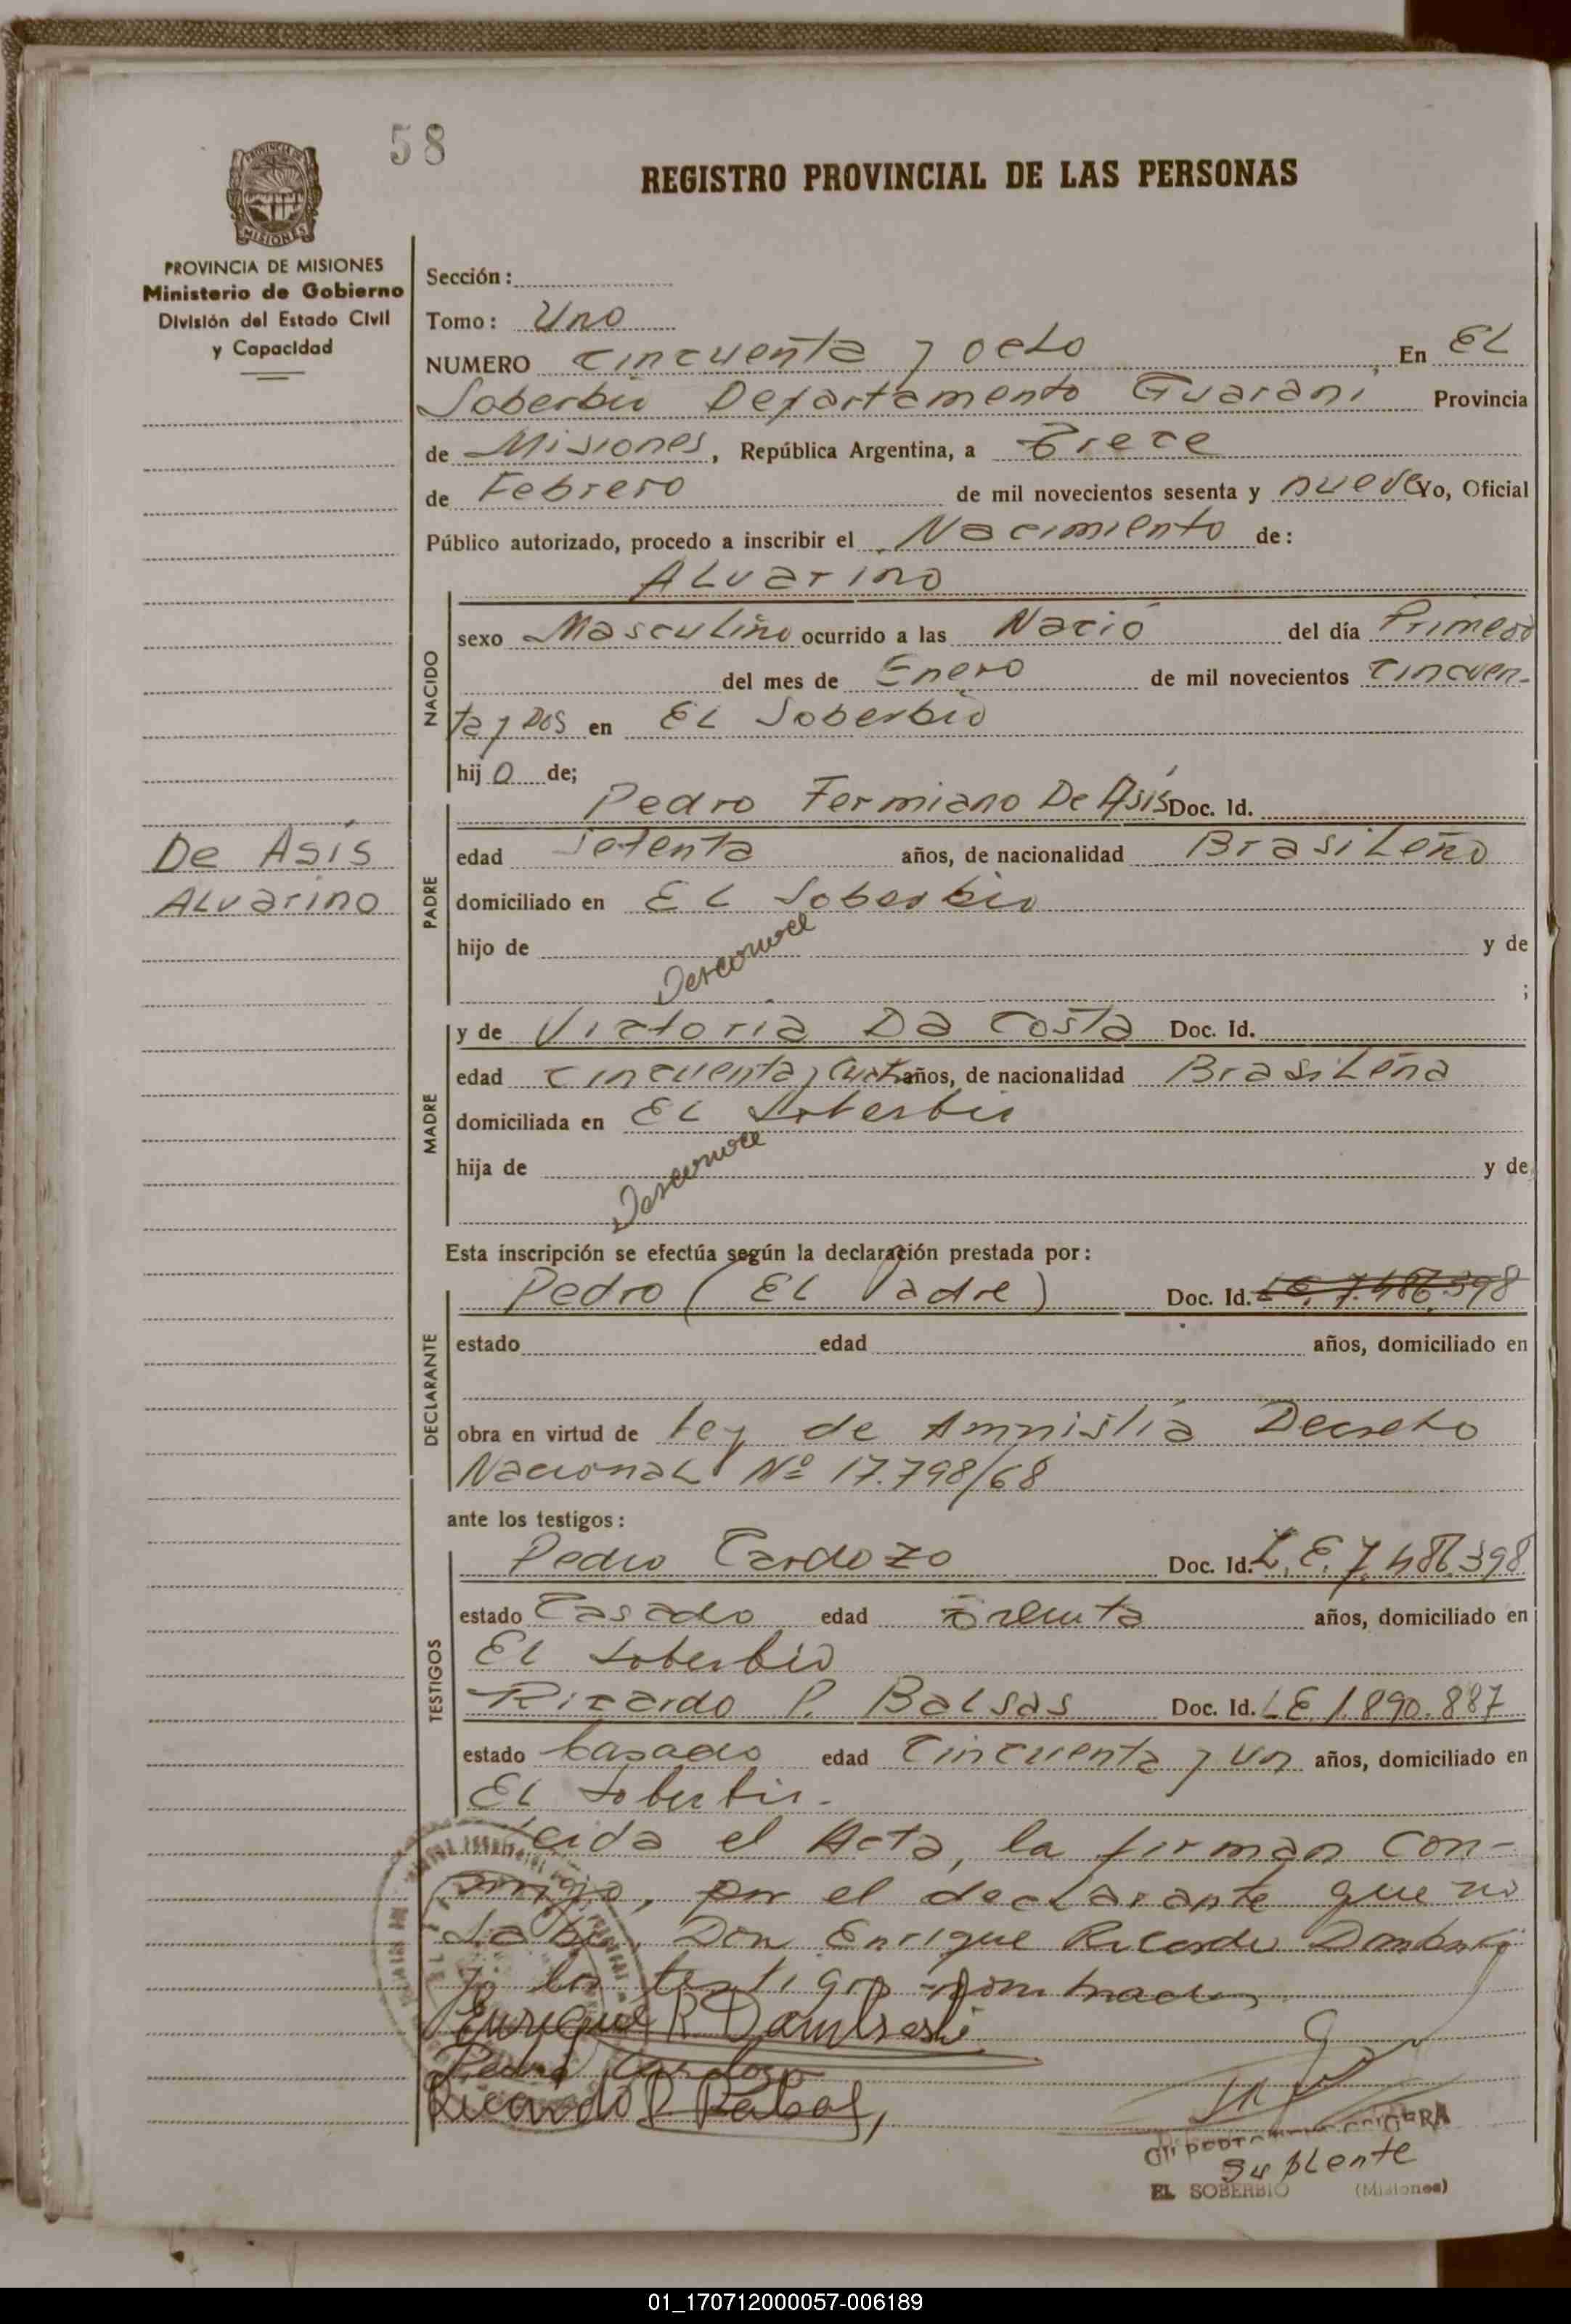 58
REGISTRO PROVINCIAL DE LAS PERSONAS
PROVINCIA DE MISIONES
Ministerio de Gobierno
División del Estado Civil
y Capacidad
Sección:
Tomo: Uno
NUMERO cincuenta y ocho En EL
Soberbio Departamento Guaraní, Provincia
de Misiones, República Argentina, a Trece
de Febrero de mil novecientos sesenta y nueve Yo, Oficial
Público autorizado, procedo a inscribir el Nacimiento de:
ALvarino
NACIDO
sexo Masculino ocurrido a las Nació del día Primero
del mes de Enero de mil novecientos cincuen-
ta y Dos en EL Soberbio
hijo de;
Pedro Fermiano De Asís Doc. Id.
De Asís
ALvarino
PADRE
edad Setenta años, de nacionalidad BrasiLeño
domiciliado en EL Soberbio
hijo de Desconoce y de
;
MADRE
y de Victoria Da Costa Doc. Id.
edad cincuenta y años, de nacionalidad BrasiLeña
domiciliada en EL Soberbio
hija de Desconoce y de
Esta inscripción se efectúa según la declaración prestada por:
DECLARANTE
Pedro (EL Padre) Doc. Id. LE. 7.486.398
estado edad años, domiciliado en
obra en virtud de Ley de Amnistía Decreto
NacionaL Nº 17.798/68
ante los testigos:
TESTIGOS
Pedro Cardozo Doc. Id. L.E. 7.486.398
estado Casado edad Treinta años, domiciliado en
EL Soberbio
Ricardo P. BaLsas Doc. Id. LE 1.890.887
estado Casado edad Cincuenta y Un años, domiciliado en
EL Soberbio.
Leida el Acta, la firman con-
migo, por el decLarante que no
sabe, Don Enrique Ricardo
y los testigos nombrados
Enrique R
Pedro Cardozo
Ricardo P Balsas,
SupLente
EL SOBERBIO (Misiones)
01_170712000057-006189